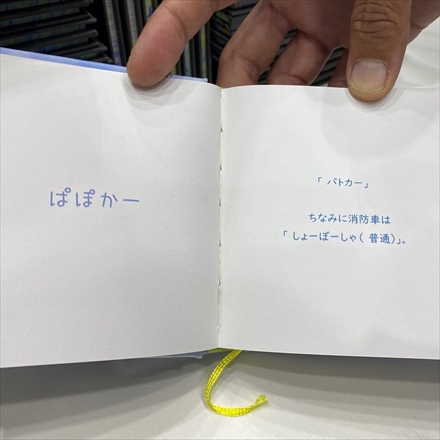 ぱぽかー
「 パトカー」
ちなみに消防車は
「 しょーぼーしゃ( 普通)」。